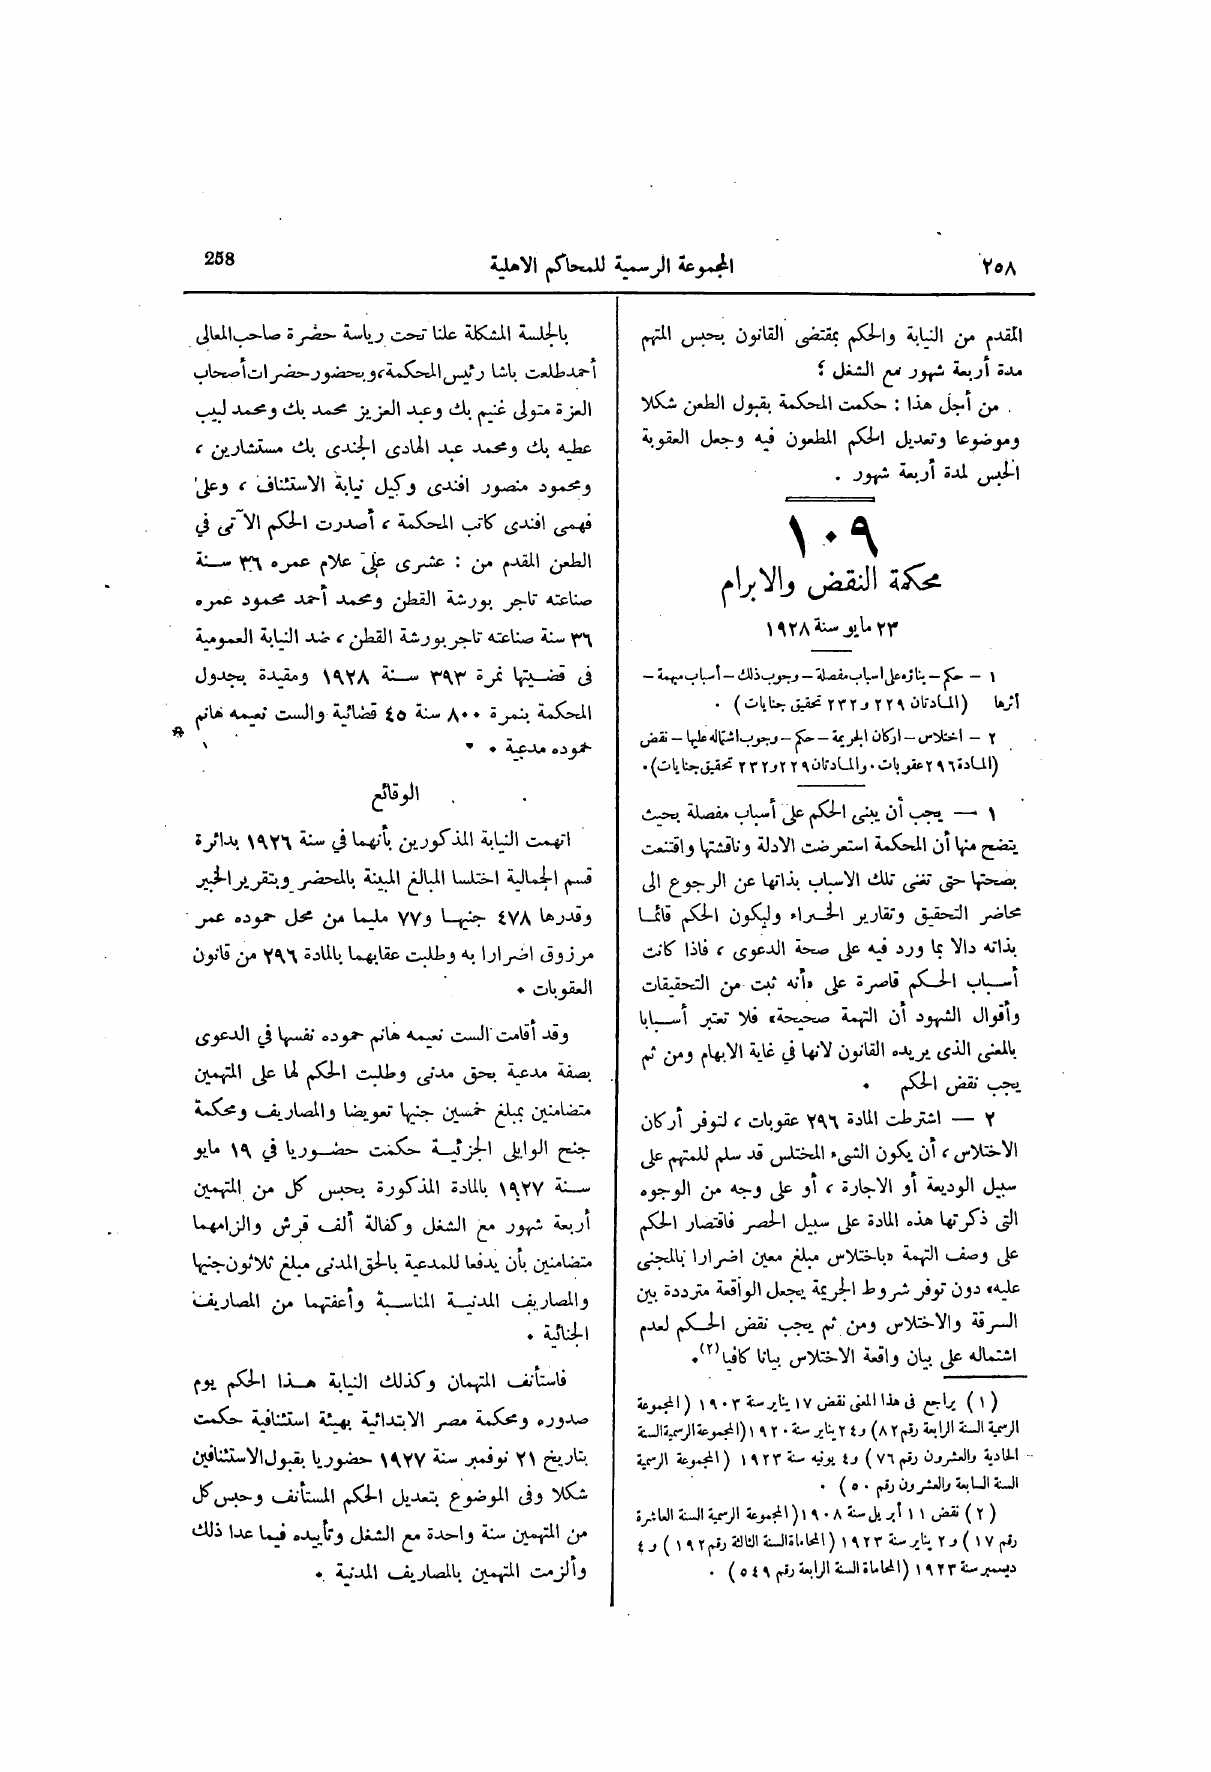 ٢٥٨
المجموعة الرسمية للمحاكم الاهلية
258
المقدم من النيابة والحكم بمقتضى القانون بحبس المتهم
مدة أربعة شهور مع الشغل ؟
من أجل هذا : حكمت المحكمة بقبول الطعن شكلا
وموضوعا وتعديل الحكم المطعون فيه وجعل العقوبة
الحبس لمدة أربعة شهور .
١٠٩
محكمة النقض والابرام
٢٣ مايو سنة ١٩٢٨
١ – حكم – بناؤه على اسباب مفصلة – وجوب ذلك – أسباب مبهمة –
أثرها (المادتان ٢٢٩ و ٢٣٢ تحقيق جنايات) .
٢ – اختلاس – اركان الجريمة – حكم – وجوب اشتماله عليها – نقض
(المادة ٢٩٦ عقوبات . والمادتان ٢٢٩ و٢٣٢ تحقيق جنايات).
١ — يجب أن يبنى الحكم على أسباب مفصلة بحيث
يتضح منها أن المحكمة استعرضت الادلة وناقشتها واقتنعت
بصحتها حتى تغنى تلك الاسباب بذاتها عن الرجوع الى
محاضر التحقيق وتقارير الخبراء وليكون الحكم قائما
بذاته دالا بما ورد فيه على صحة الدعوى ، فاذا كانت
أسباب الحكم قاصرة على «أنه ثبت من التحقيقات
وأقوال الشهود أن التهمة صحيحة» فلا تعتبر أسبابا
بالمعنى الذى يريده القانون لانها في غاية الابهام ومن ثم
يجب نقض الحكم .
٢ — اشترطت المادة ٢٩٦ عقوبات ، لتوفر أركان
الاختلاس ، أن يكون الشىء المختلس قد سلم للمتهم على
سبيل الوديعة أو الاجارة ، أو على وجه من الوجوه
التى ذكرتها هذه المادة على سبيل الحصر فاقتصار الحكم
على وصف التهمة «باختلاس مبلغ معين اضرارا بالمجنى
عليه» دون توفر شروط الجريمة يجعل الواقعة مترددة بين
السرقة والاختلاس ومن ثم يجب نقض الحكم لعدم
اشتماله على بيان واقعة الاختلاس بيانا كافيا(٢).
(١) يراجع فى هذا المعنى نقض ١٧ يناير سنة ١٩٠٣ (المجموعة
الرسمية السنة الرابعة رقم ٨٢) و٢٤ يناير سنة ١٩٢٠ (المجموعة الرسمية السنة
الحادية والعشرون رقم ٧٦) و٤ يونيه سنة ١٩٢٣ (المجموعة الرسمية
السنة السابعة والعشرون رقم ٥٠) .
(٢) نقض ١١ أبريل سنة ١٩٠٨ (المجموعة الرسمية السنة العاشرة
رقم ١٧) و٢ يناير سنة ١٩٢٣ (المحاماة السنة الثالثة رقم ١٩٢) و٤
ديسمبر سنة ١٩٢٣ (المحاماة السنة الرابعة رقم ٥٤٩) .
بالجلسة المشكلة علنا تحت رياسة حضرة صاحب المعالى
أحمد طلعت باشا رئيس المحكمة، وبحضور حضرات أصحاب
العزة متولى غنيم بك وعبد العزيز محمد بك ومحمد لبيب
عطيه بك ومحمد عبد الهادى الجندى بك مستشارين ،
ومحمود منصور افندى وكيل نيابة الاستئناف ، وعلى
فهمى افندى كاتب المحكمة ، أصدرت الحكم الآتى في
الطعن المقدم من : عشرى على علام عمره ٣٦ سنة
صناعته تاجر بورشة القطن ومحمد أحمد محمود عمره
٣٦ سنة صناعته تاجر بورشة القطن ، ضد النيابة العمومية
فى قضيتها نمرة ٣٩٣ سنة ١٩٢٨ ومقيدة بجدول
المحكمة بنمرة ٨٠٠ سنة ٤٥ قضائية والست نعيمه هانم
حموده مدعية .
الوقائع
اتهمت النيابة المذكورين بأنهما في سنة ١٩٢٦ بدائرة
قسم الجمالية اختلسا المبالغ المبينة بالمحضر وبتقرير الخبير
وقدرها ٤٧٨ جنيها و٧٧ مليما من محل حموده عمر
مرزوق اضرارا به وطلبت عقابهما بالمادة ٢٩٦ من قانون
العقوبات .
وقد أقامت الست نعيمه هانم حموده نفسها في الدعوى
بصفة مدعية بحق مدنى وطلبت الحكم لها على المتهمين
متضامنين بمبلغ خمسين جنيها تعويضا والمصاريف ومحكمة
جنح الوايلى الجزئية حكمت حضوريا في ١٩ مايو
سنة ١٩٢٧ بالمادة المذكورة بحبس كل من المتهمين
أربعة شهور مع الشغل وكفالة ألف قرش والزامهما
متضامنين بأن يدفعا للمدعية بالحق المدنى مبلغ ثلاثون جنيها
والمصاريف المدنية المناسبة وأعفتهما من المصاريف
الجنائية .
فاستأنف المتهمان وكذلك النيابة هذا الحكم يوم
صدوره ومحكمة مصر الابتدائية بهيئة استئنافية حكمت
بتاريخ ٢١ نوفمبر سنة ١٩٢٧ حضوريا بقبول الاستئنافين
شكلا وفى الموضوع بتعديل الحكم المستأنف وحبس كل
من المتهمين سنة واحدة مع الشغل وتأييده فيما عدا ذلك
وألزمت المتهمين بالمصاريف المدنية .